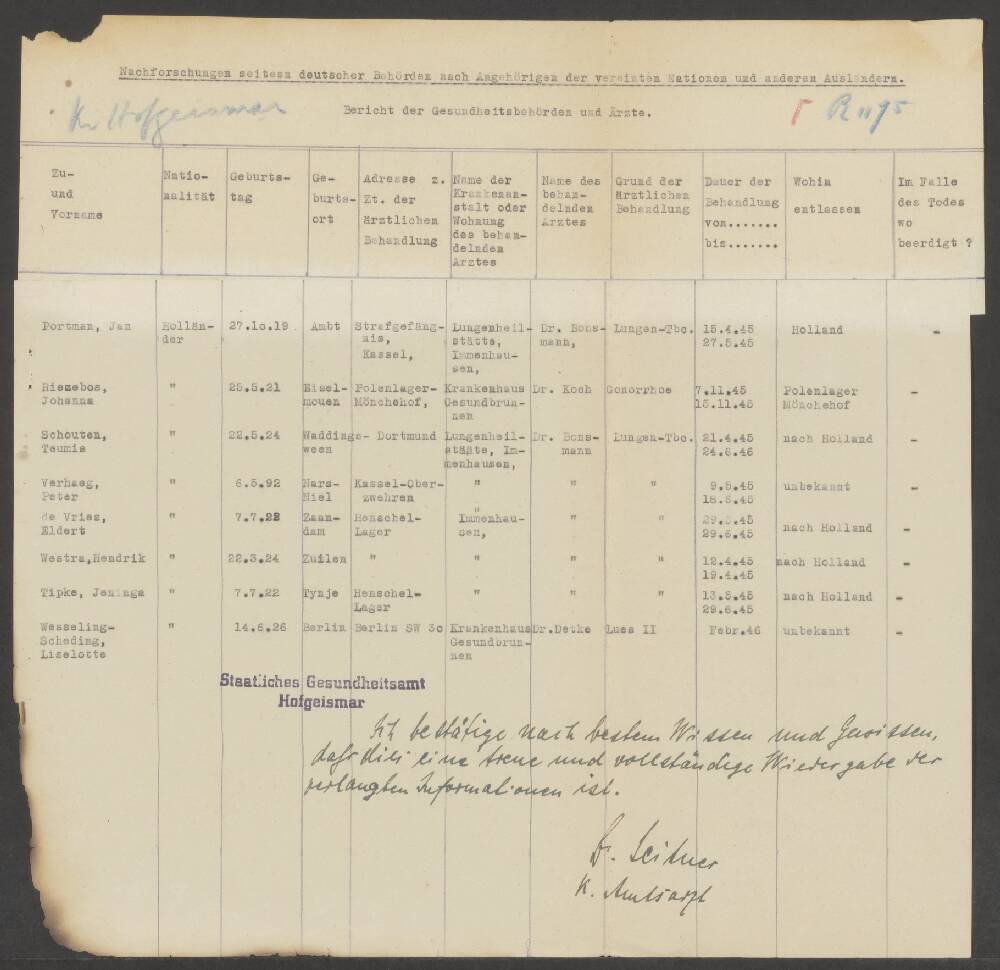 Nachforschungen seitesn deutscher Behörden nach Angehörigen der vereinten Nationen und anderen Ausländern.
Kr Hofgeismar
Bericht der Gesundheitsbehörden und Ärzte.
Zu- und Vorname | Natio- nalität | Geburts- tag | Ge- burts- ort | Adresse z. Zt. der ärztlichen Behandlung | Name der Krankenan- stalt oder Wohnung des behan- delnden Arztes | Name des behan- delnden Arztes | Grund der ärztlichen Behandlung | Dauer der Behandlung von....... bis....... | Wohin entlassen | Im Falle des Todes wo beerdigt ?
Portman, Jan | Hollän- der | 27.10.19 | Ambt | Strafgefäng- nis, Kassel, | Lungenheil- stätte, Immenhau- sen, | Dr. Bons- mann, | Lungen-Tbc. | 15.4.45 27.5.45 | Holland | -
Riezebos, Johanna | " | 25.5.21 | Eisel- mouen | Polenlager- Mönchehof, | Krankenhaus Gesundbrun- nen | Dr. Koch | Gonorrhoe | 7.11.45 15.11.45 | Polenlager Mönchehof | -
Schouten, Teumis | " | 22.5.24 | Waddings- ween | Dortmund | Lungenheil- stääte, Im- menhausen, | Dr. Bons- mann | Lungen-Tbc. | 21.4.45 24.6.46 | nach Holland | -
Verhaeg, Peter | " | 6.5.92 | Nars- Niel | Kassel-Ober- zwehren | " | " | " | 9.5.45 18.6.45 | unbekannt | -
de Vries, Eldert | " | 7.7.22 | Zaan- dam | Henschel- Lager | " Immenhau- sen, | " | " | 29.6.45 | nach Holland | -
Westra,Hendrik | " | 22.3.24 | Zuilen | " | " | " | " | 12.4.45 19.4.45 | nach Holland | -
Tipke, Jeninga | " | 7.7.22 | Tynje | Henschel- Lager | " | " | " | 13.5.45 29.6.45 | nach Holland | -
Wesseling- Scheding, Liselotte | " | 14.6.26 | Berlin | Berlin SW 30 | Krankenhaus Gesundbrun- nen | Dr.Detke | Lues II | Febr.46 | unbekannt | -
Staatliches Gesundheitsamt
Hofgeismar
Ich bestätige nach bestem Wissen und Gewissen,
daß dies eine treue und vollständige Wiedergabe der
verlangten Informationen ist.
Dr. Leitner
K. Amtsarzt